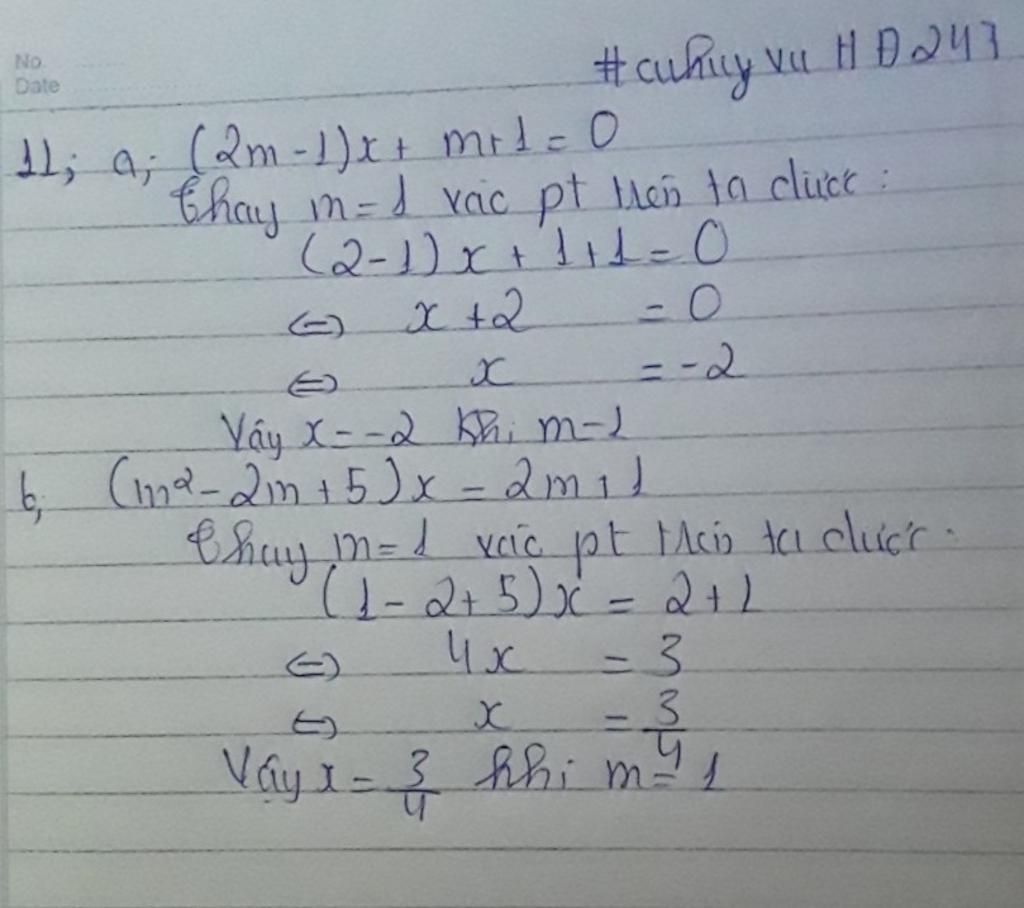 No.
Date
#cuhuy vu HD247
11; a; (2m - 1)x + m+1 = 0
Thay m = 1 vào pt trên ta được :
(2-1) x + 1+1 = 0
<=> x +2 = 0
<=> x = -2
Vậy x = -2 khi m=1
b, (m² - 2m + 5)x = 2m+1
Thay m = 1 vào pt trên ta được.
(1 - 2 + 5)x = 2+1
<=> 4x = 3
<=> x = 3/4
Vậy x = 3/4 khi m = 1